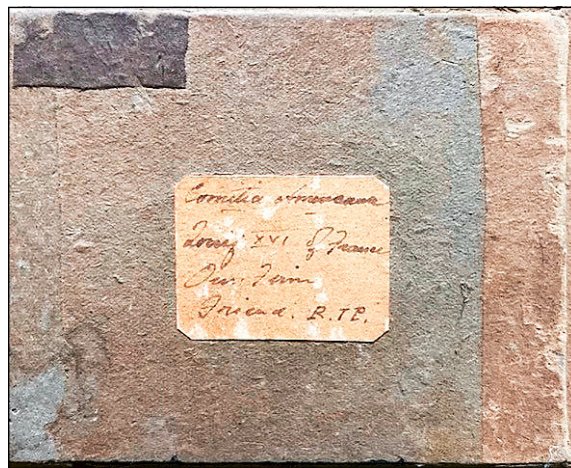 Comitia Americana
Louis XVI of France
Our Firm
Friend. R.T.P.